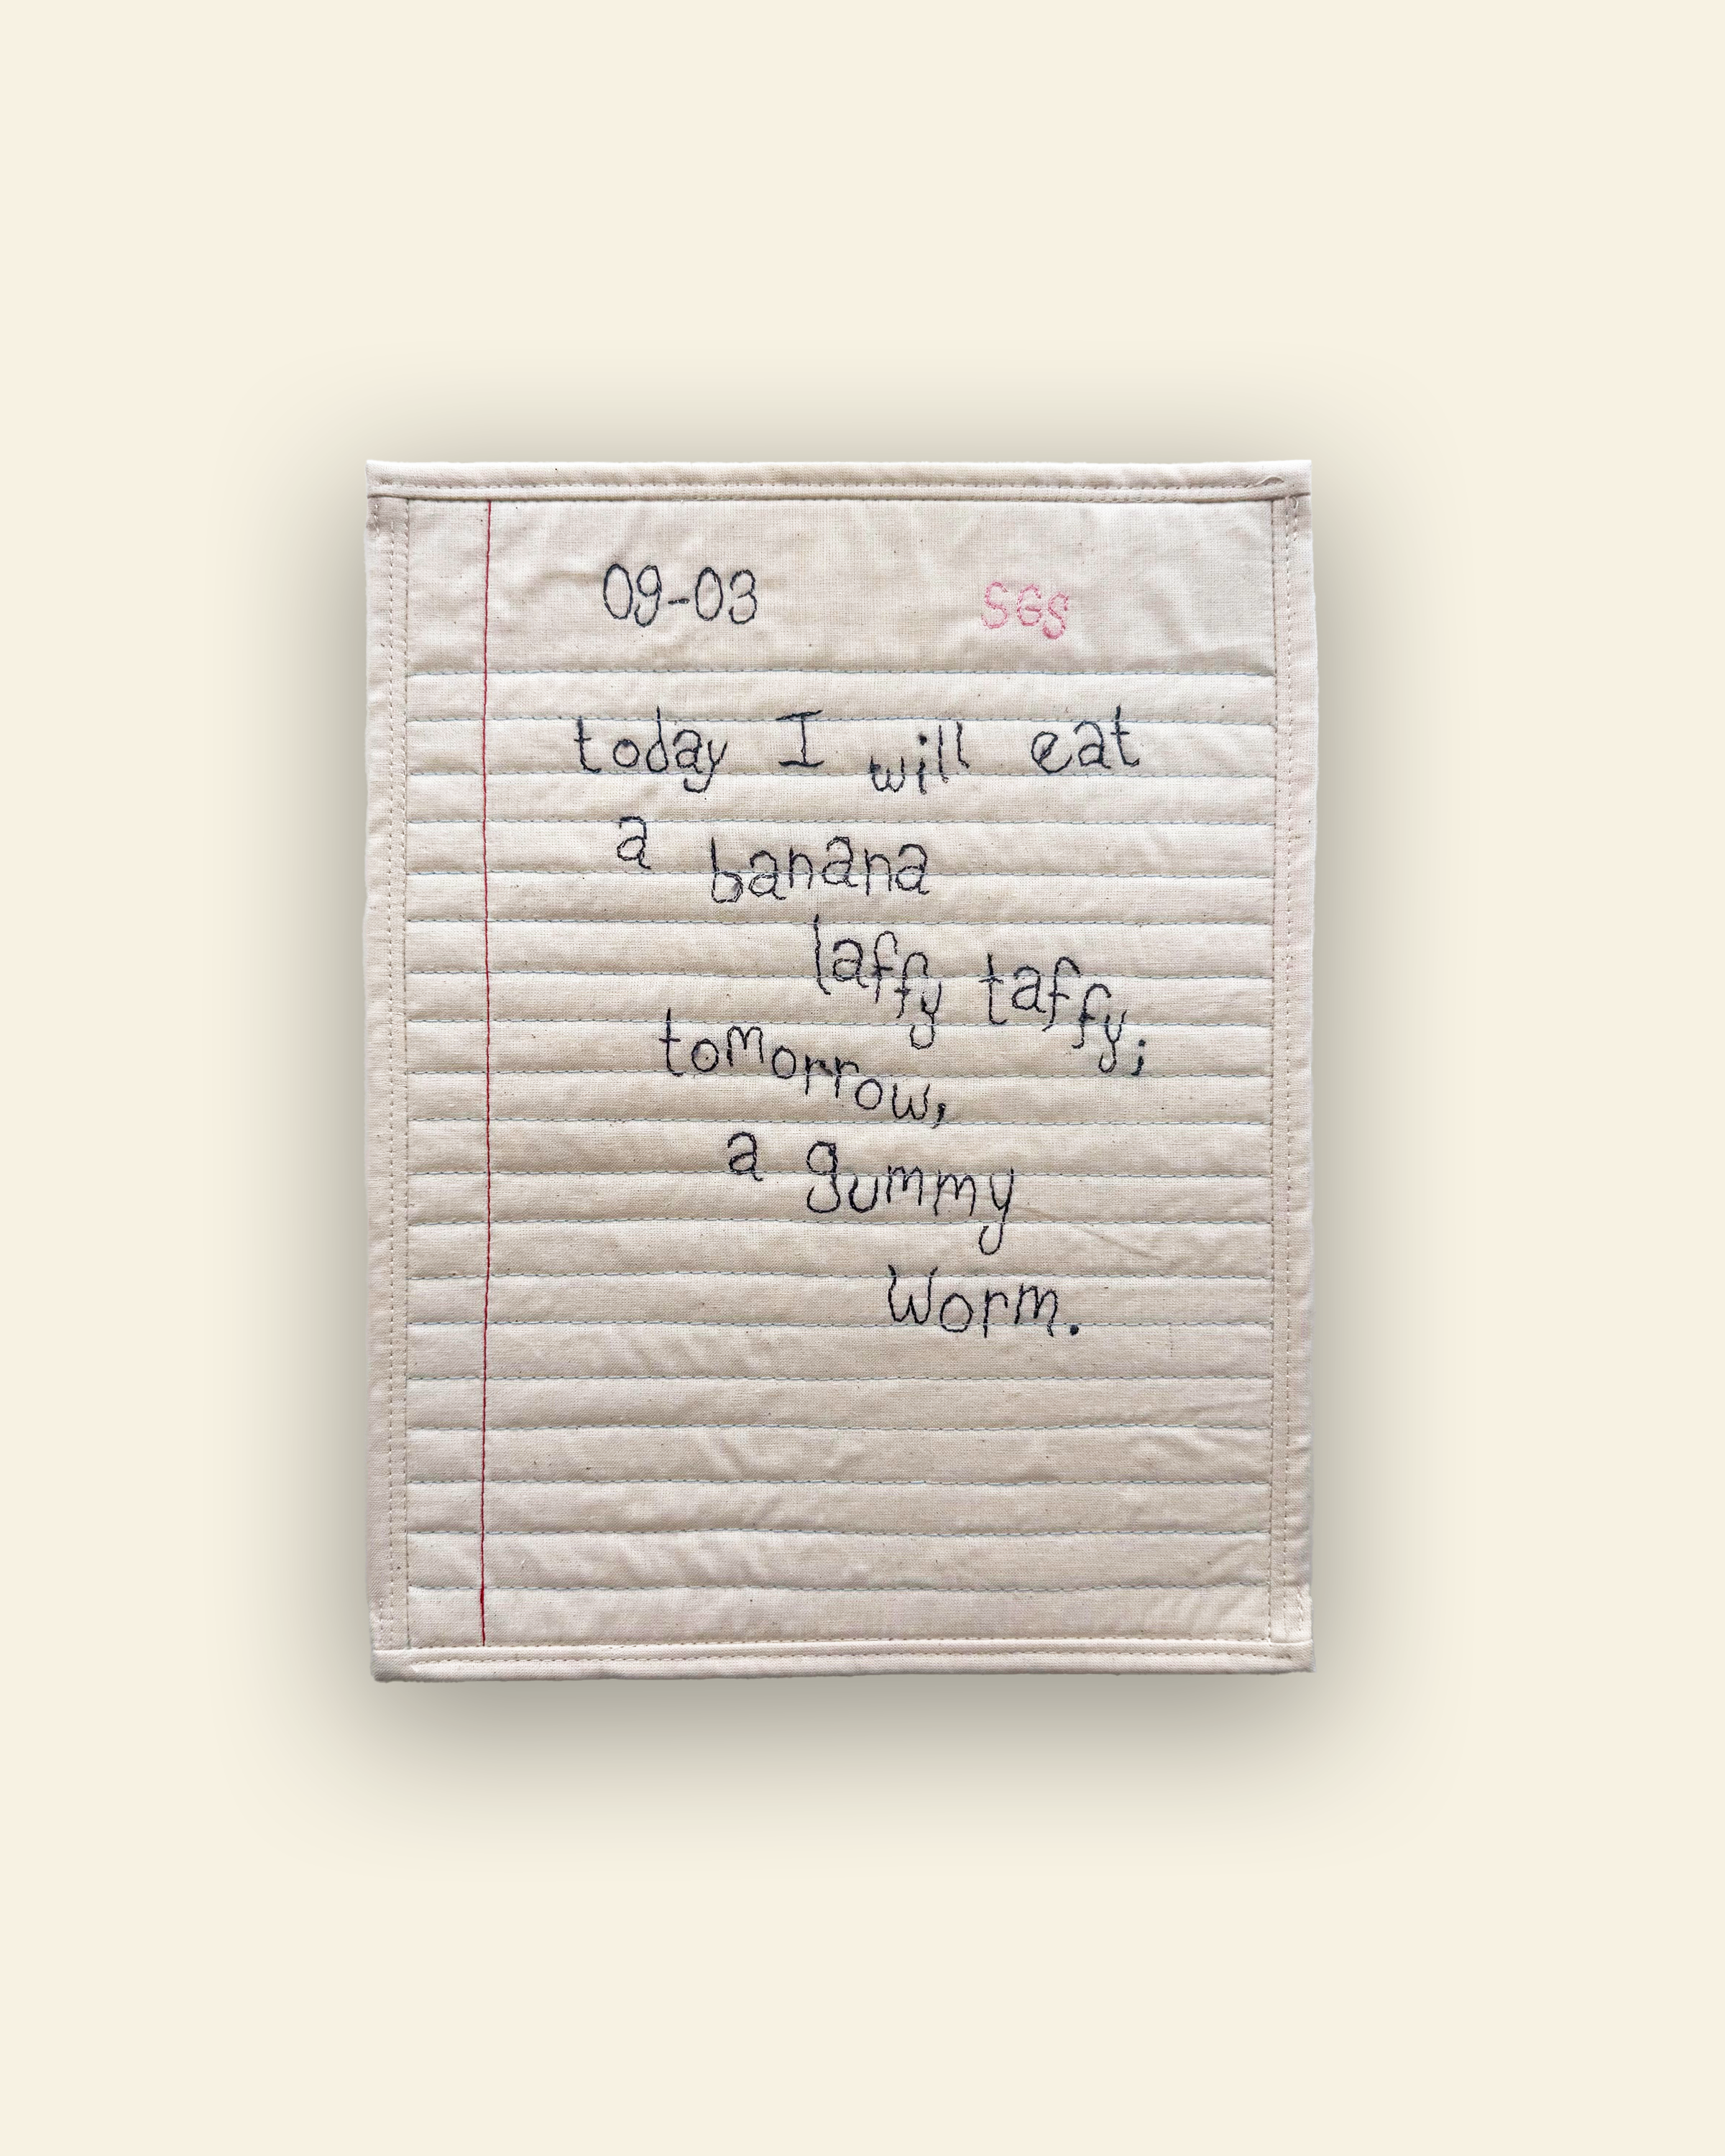 09-03 SGS
today I will eat
a banana
laffy taffy;
tomorrow,
a gummy
Worm.